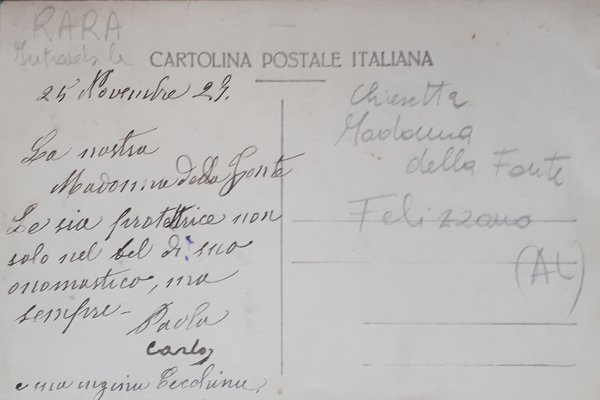 RARA
CARTOLINA POSTALE ITALIANA
25 Novembre 27.
La nostra
Madonna della Fonte
Le sia protettrice non
solo nel bel dì suo
onomastico, ma
sempre -
Paola
Carlo
e
Chiesetta
Madonna
della Fonte
Felizzano
(AL)